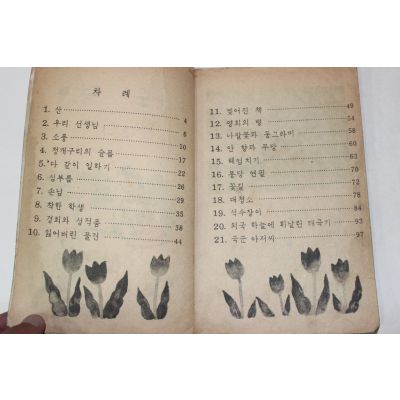 차 례
1. 산 4
2. 우리 선생님 6
3. 소풍 10
4. 청개구리의 슬픔 17
5. 다 같이 일하기 22
6. 심부름 26
7. 손님 29
8. 착한 학생 35
9. 경희와 성적품 38
10. 잃어버린 물건 44
11. 찢어진 책 49
12. 영희의 병 54
13. 나팔꽃와 동그라미 58
14. 안 향과 무당 60
15. 헤엄치기
16. 통팡 연필
17. 꽃길
18. 대청소
19. 석수장이
20. 외국 하늘에 휘날린 태극기
21. 국군 아저씨 97